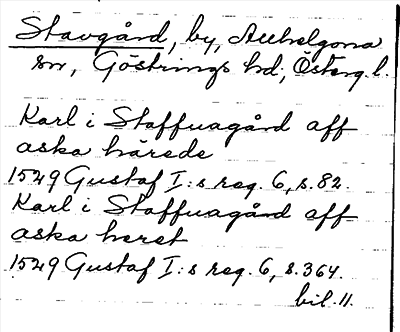 Stavgård, by, Allhelgona
sn, Göstrings hd, Österg. l.
Karl i Staffuagård aff
aska härede
1529 Gustaf I:s reg. 6, s. 82.
Karl i Staffuagård aff
aska heret
1529 Gustaf I:s reg. 6, s. 364.
bil. 11.